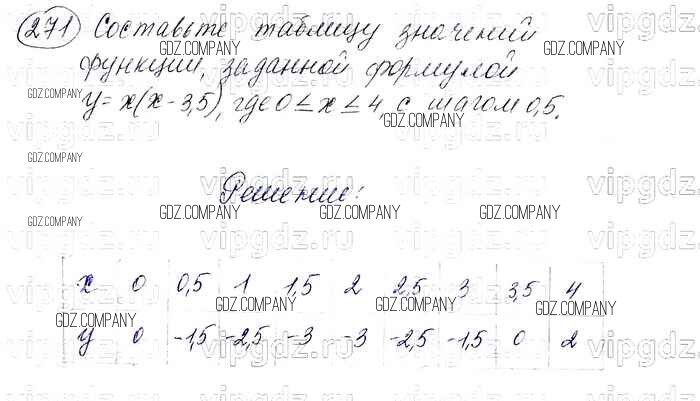 271 Составьте таблицу значений
функции, заданной формулой
y = x(x - 3,5), где 0 ≤ x ≤ 4, с шагом 0,5.
Решение:
x 0 0,5 1 1,5 2 2,5 3 3,5 4
y 0 -1,5 -2,5 -3 -3 -2,5 -1,5 0 2
GDZ.COMPANY
vipgdz.ru